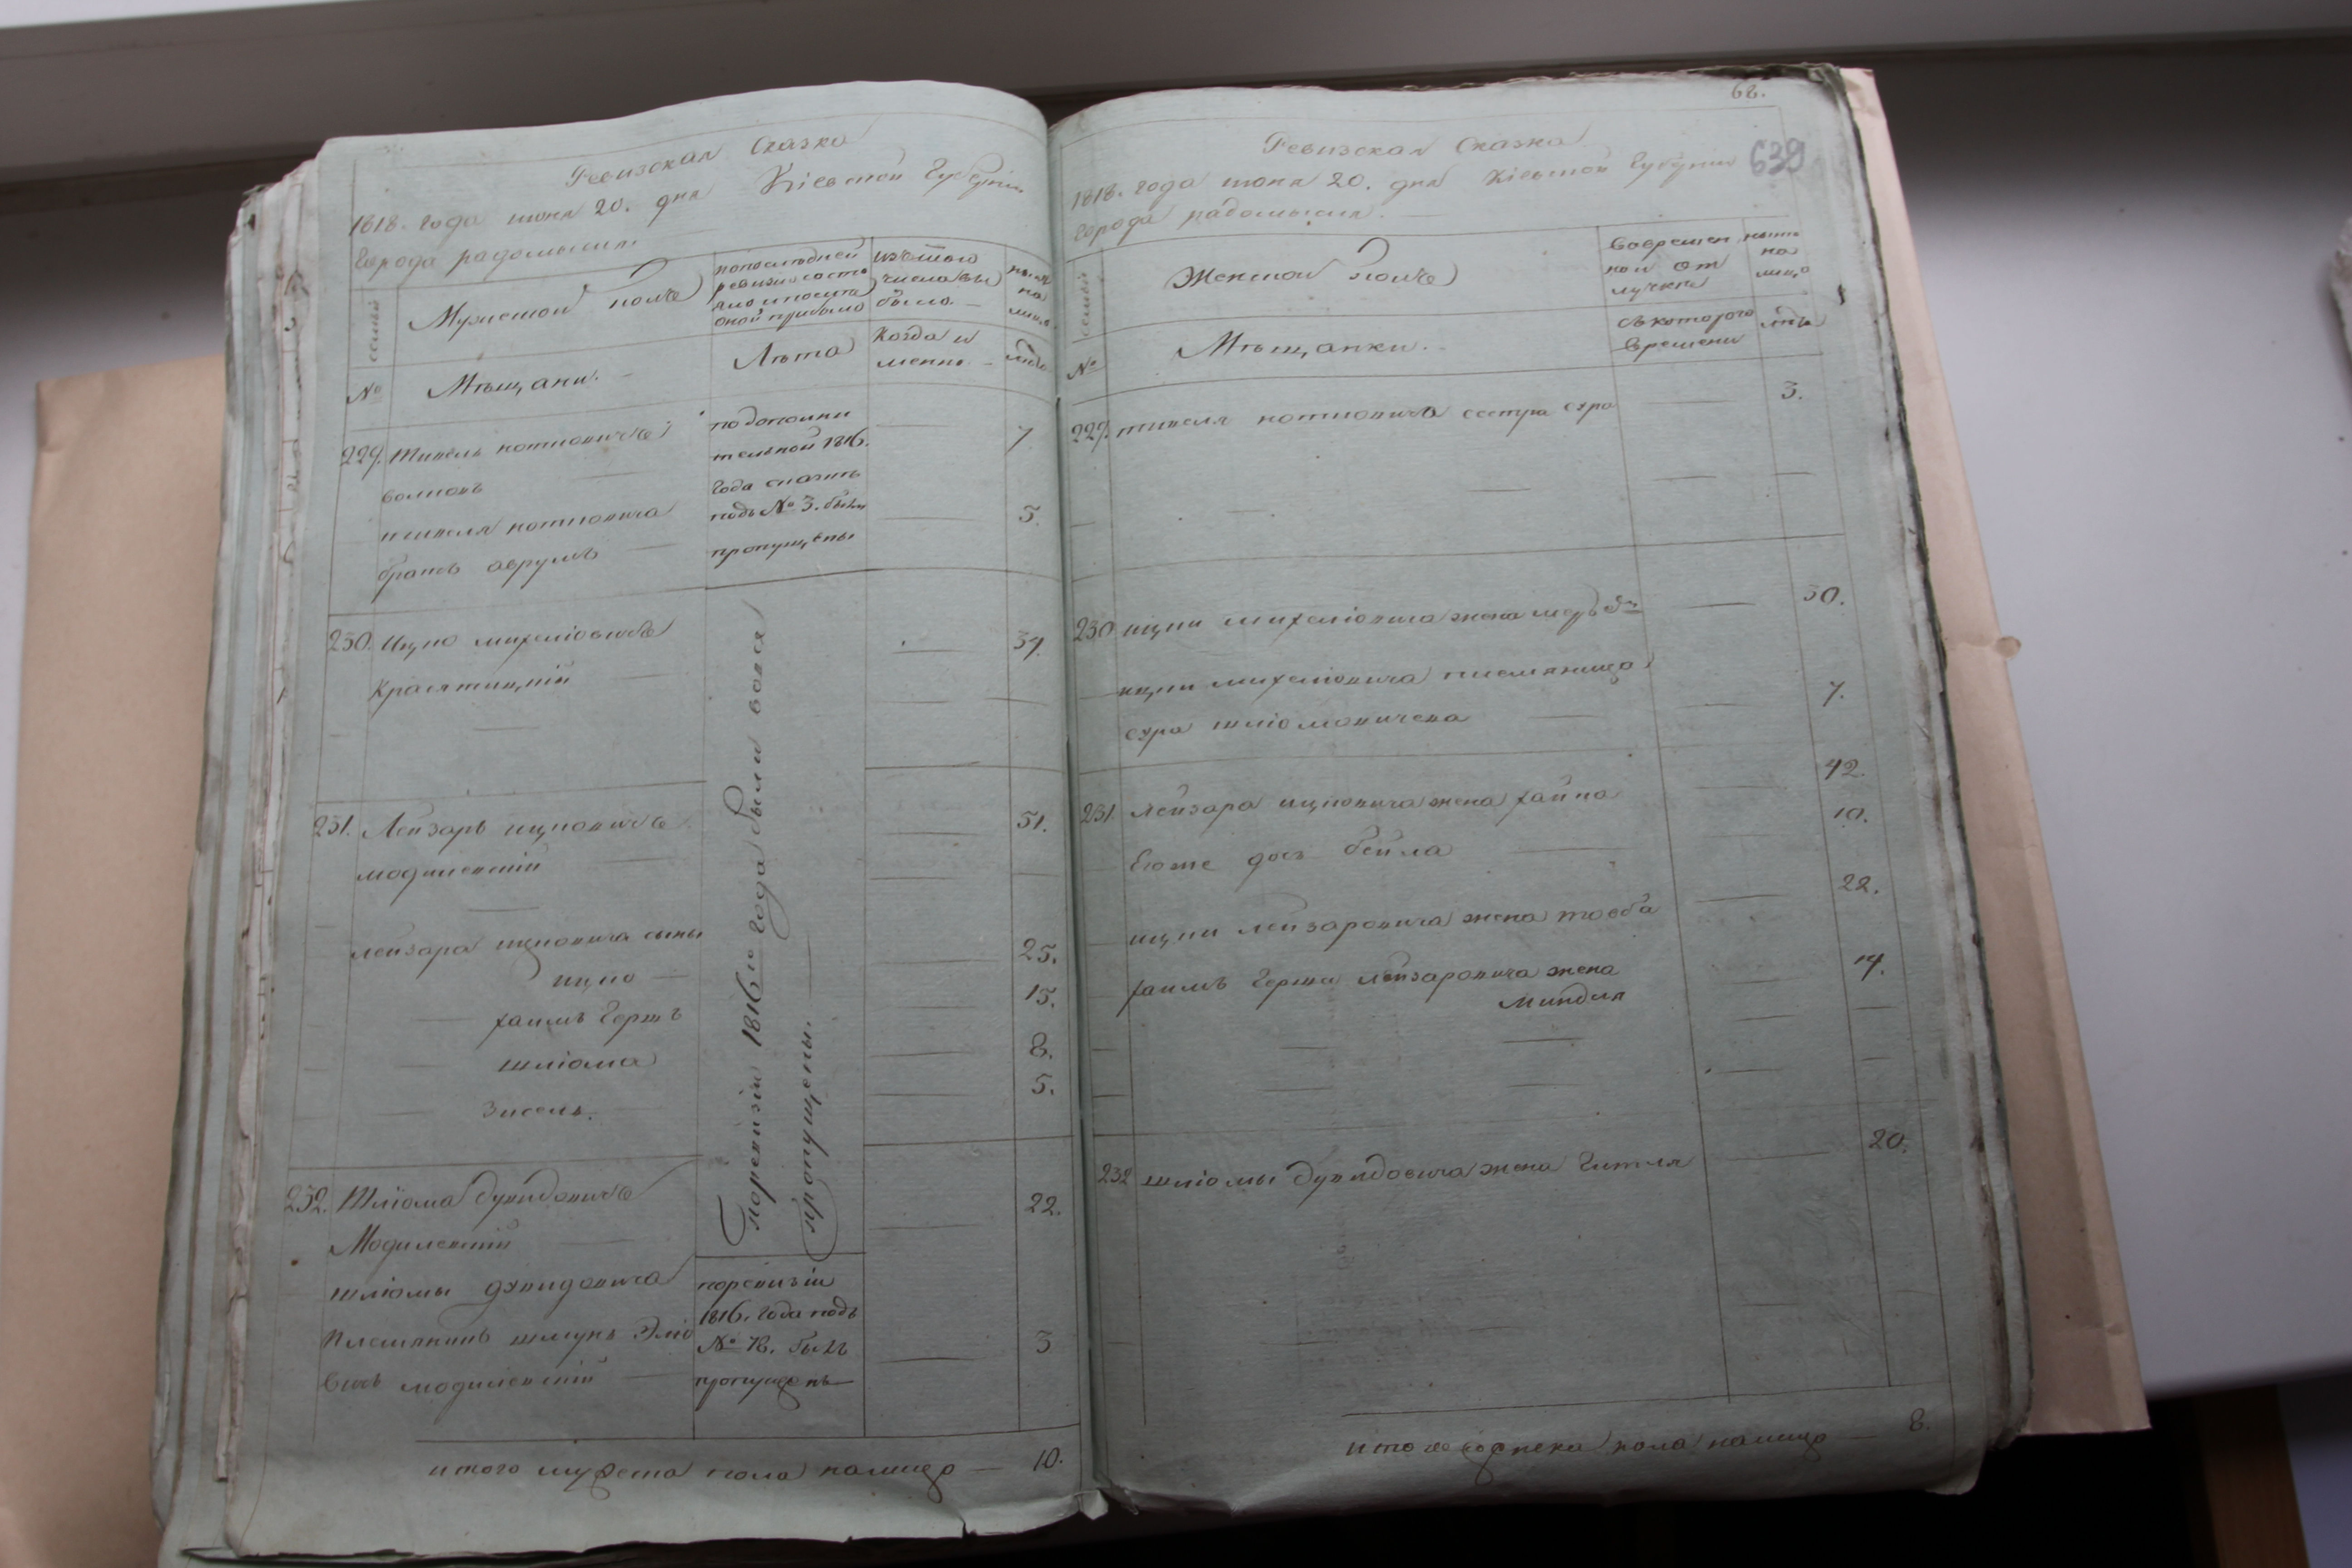 Ревизская Сказка
1818. года июня 20. дня Кіевской Губерніи
Города радомысля
семьи
Мужеской полъ
попоследней
ревизіи состо
яло ипосле
оной прибыло
изътого
числа вы
было
ныне
на
лицо
№
Мѣщани.
Лѣта
Когда и
менно
лѣта
229.
волковъ
брать аврумъ
подополни
тельной 1816.
года сказкѣ
подъ № 3. были
пропущены
7
5.
230. Ицко михеліовичъ
Красятицкій
39.
поревизіи 1816го года были вовся
пропущены.
231. Лейзаръ ицковичъ
модилевскій
51.
лейзара ицковича сыны
ицко
25.
хаимъ Гершъ
15.
шліома
8.
Зисель.
5.
232. Шліома дувидовичъ
Модилевскій
22.
шліомы дувидовича
племянникъ шмуль Элio
вичъ модилевскій
поревизіи
1816. года подъ
№ 78. былъ
пропущенъ
3
итого мужеска пола налицо — 10.
68.
639
Ревизская Сказка
1818. года июня 20. дня Кіевской Губерніи
Города радомысля.
семьи
Женской полъ
Вовремен
ной от
лучке
ныне
на
лицо
№
Мѣщанки.
съкоторого
времени
лѣта
229. сестра сура
3.
230 ицки михеліовича жена
30.
ицки михеліовича племяница
сура шліомовичева
7.
231 лейзара ицковича жена хайка
42.
Егоже дочь бейла
10.
ицки лейзаровича жена тоеба
22.
хаимъ Герша лейзаровича жена
Миндля
19.
232 шліомы дувидовича жена Гитля
20.
итого женска пола налицо — 8.